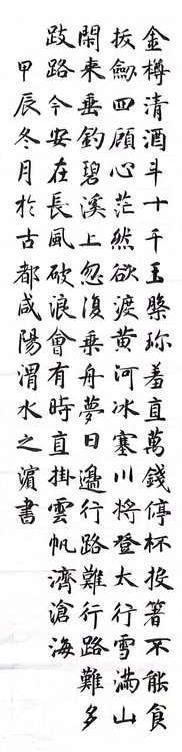 金樽清酒斗十千玉槃珎羞直萬錢停杯投箸不能食
拔劔四顧心茫然欲渡黄河冰塞川將登太行雪滿山
閑来垂釣碧溪上忽復乗舟夢日邊行路難行路難多
歧路今安在長風破浪會有時直掛雲帆濟滄海
甲辰冬月於古都咸陽渭水之濱書